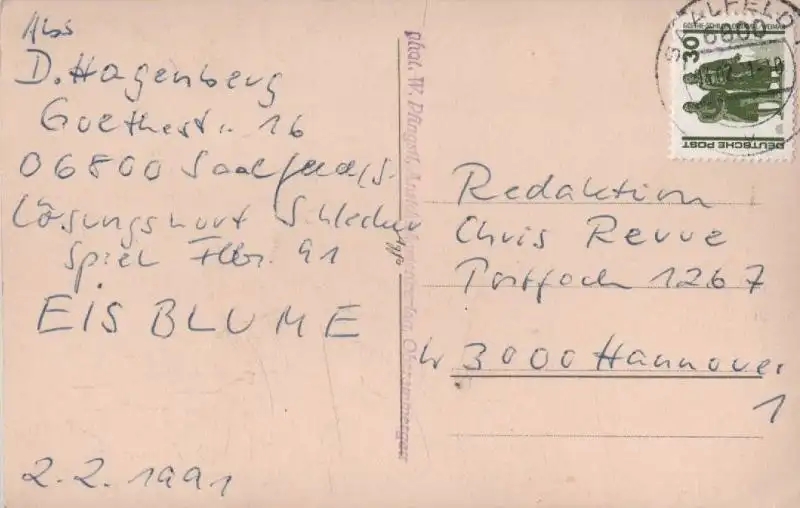 Abs
D. Hagenberg
Goethestr. 16
06800 Saalfeld/S.
Lösungswort Schlecker
Spiel Febr. 91
EISBLUME
2.2.1991
phot. W. Pfingstl,
Oberammergau
SAALFELD
6800
30
DEUTSCHE POST
Redaktion
Chris Revue
Postfach 1267
W 3000 Hannover
1